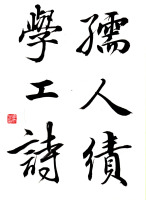 孺人績
學工詩